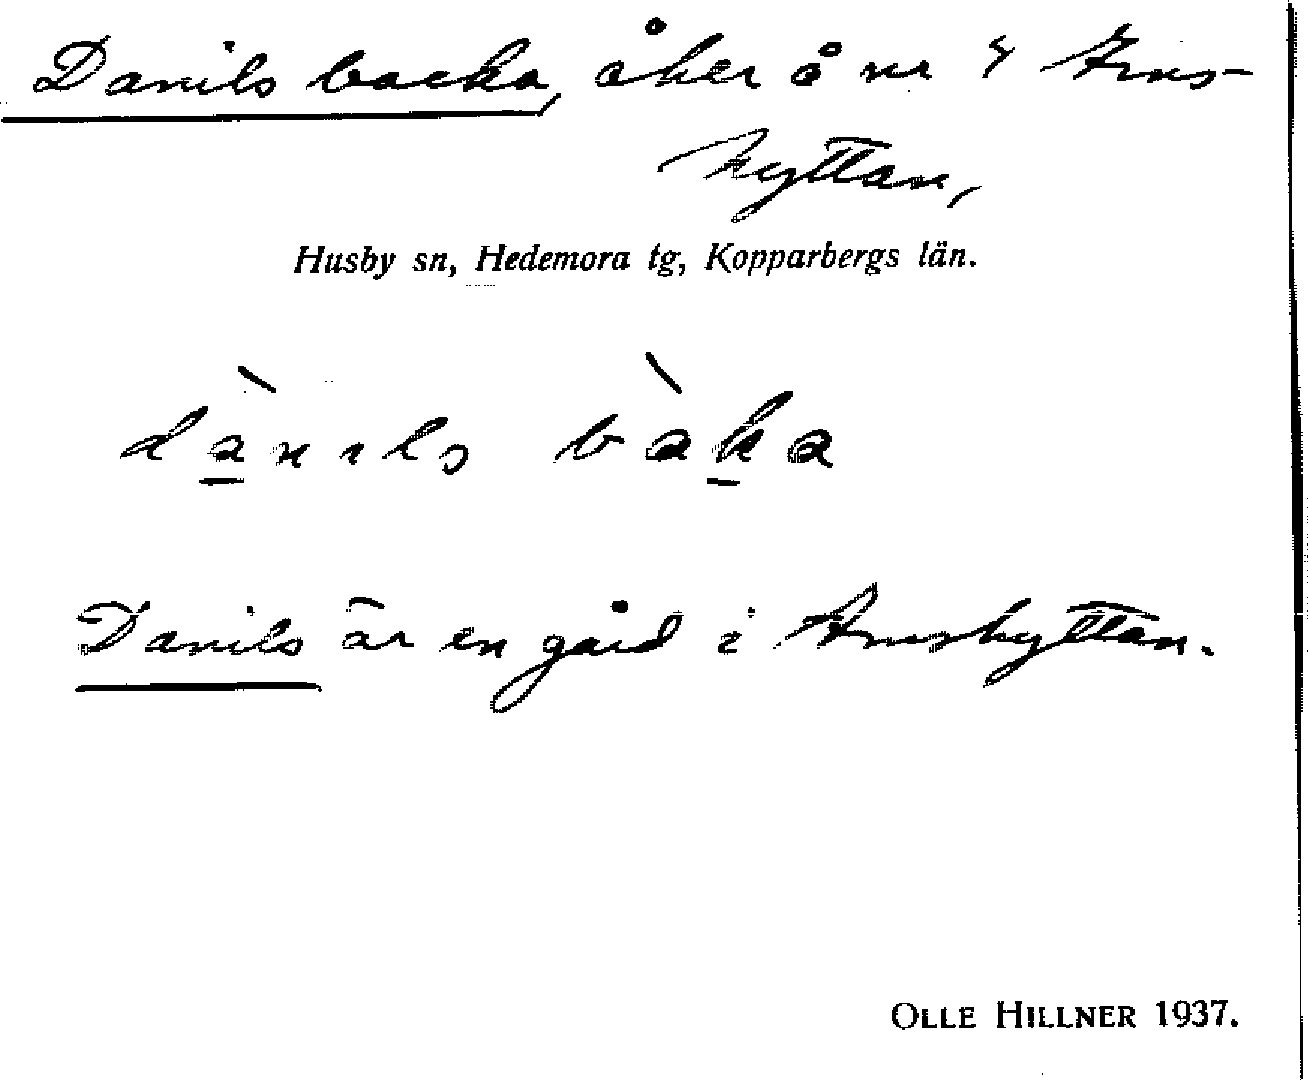 Danils backa, åker å nr 4 Arns-
hyttan,
Husby sn, Hedemora tg, Kopparbergs län.
dànıls bàka
Danils är en gård i Arnshyttan.
OLLE HILLNER 1937.